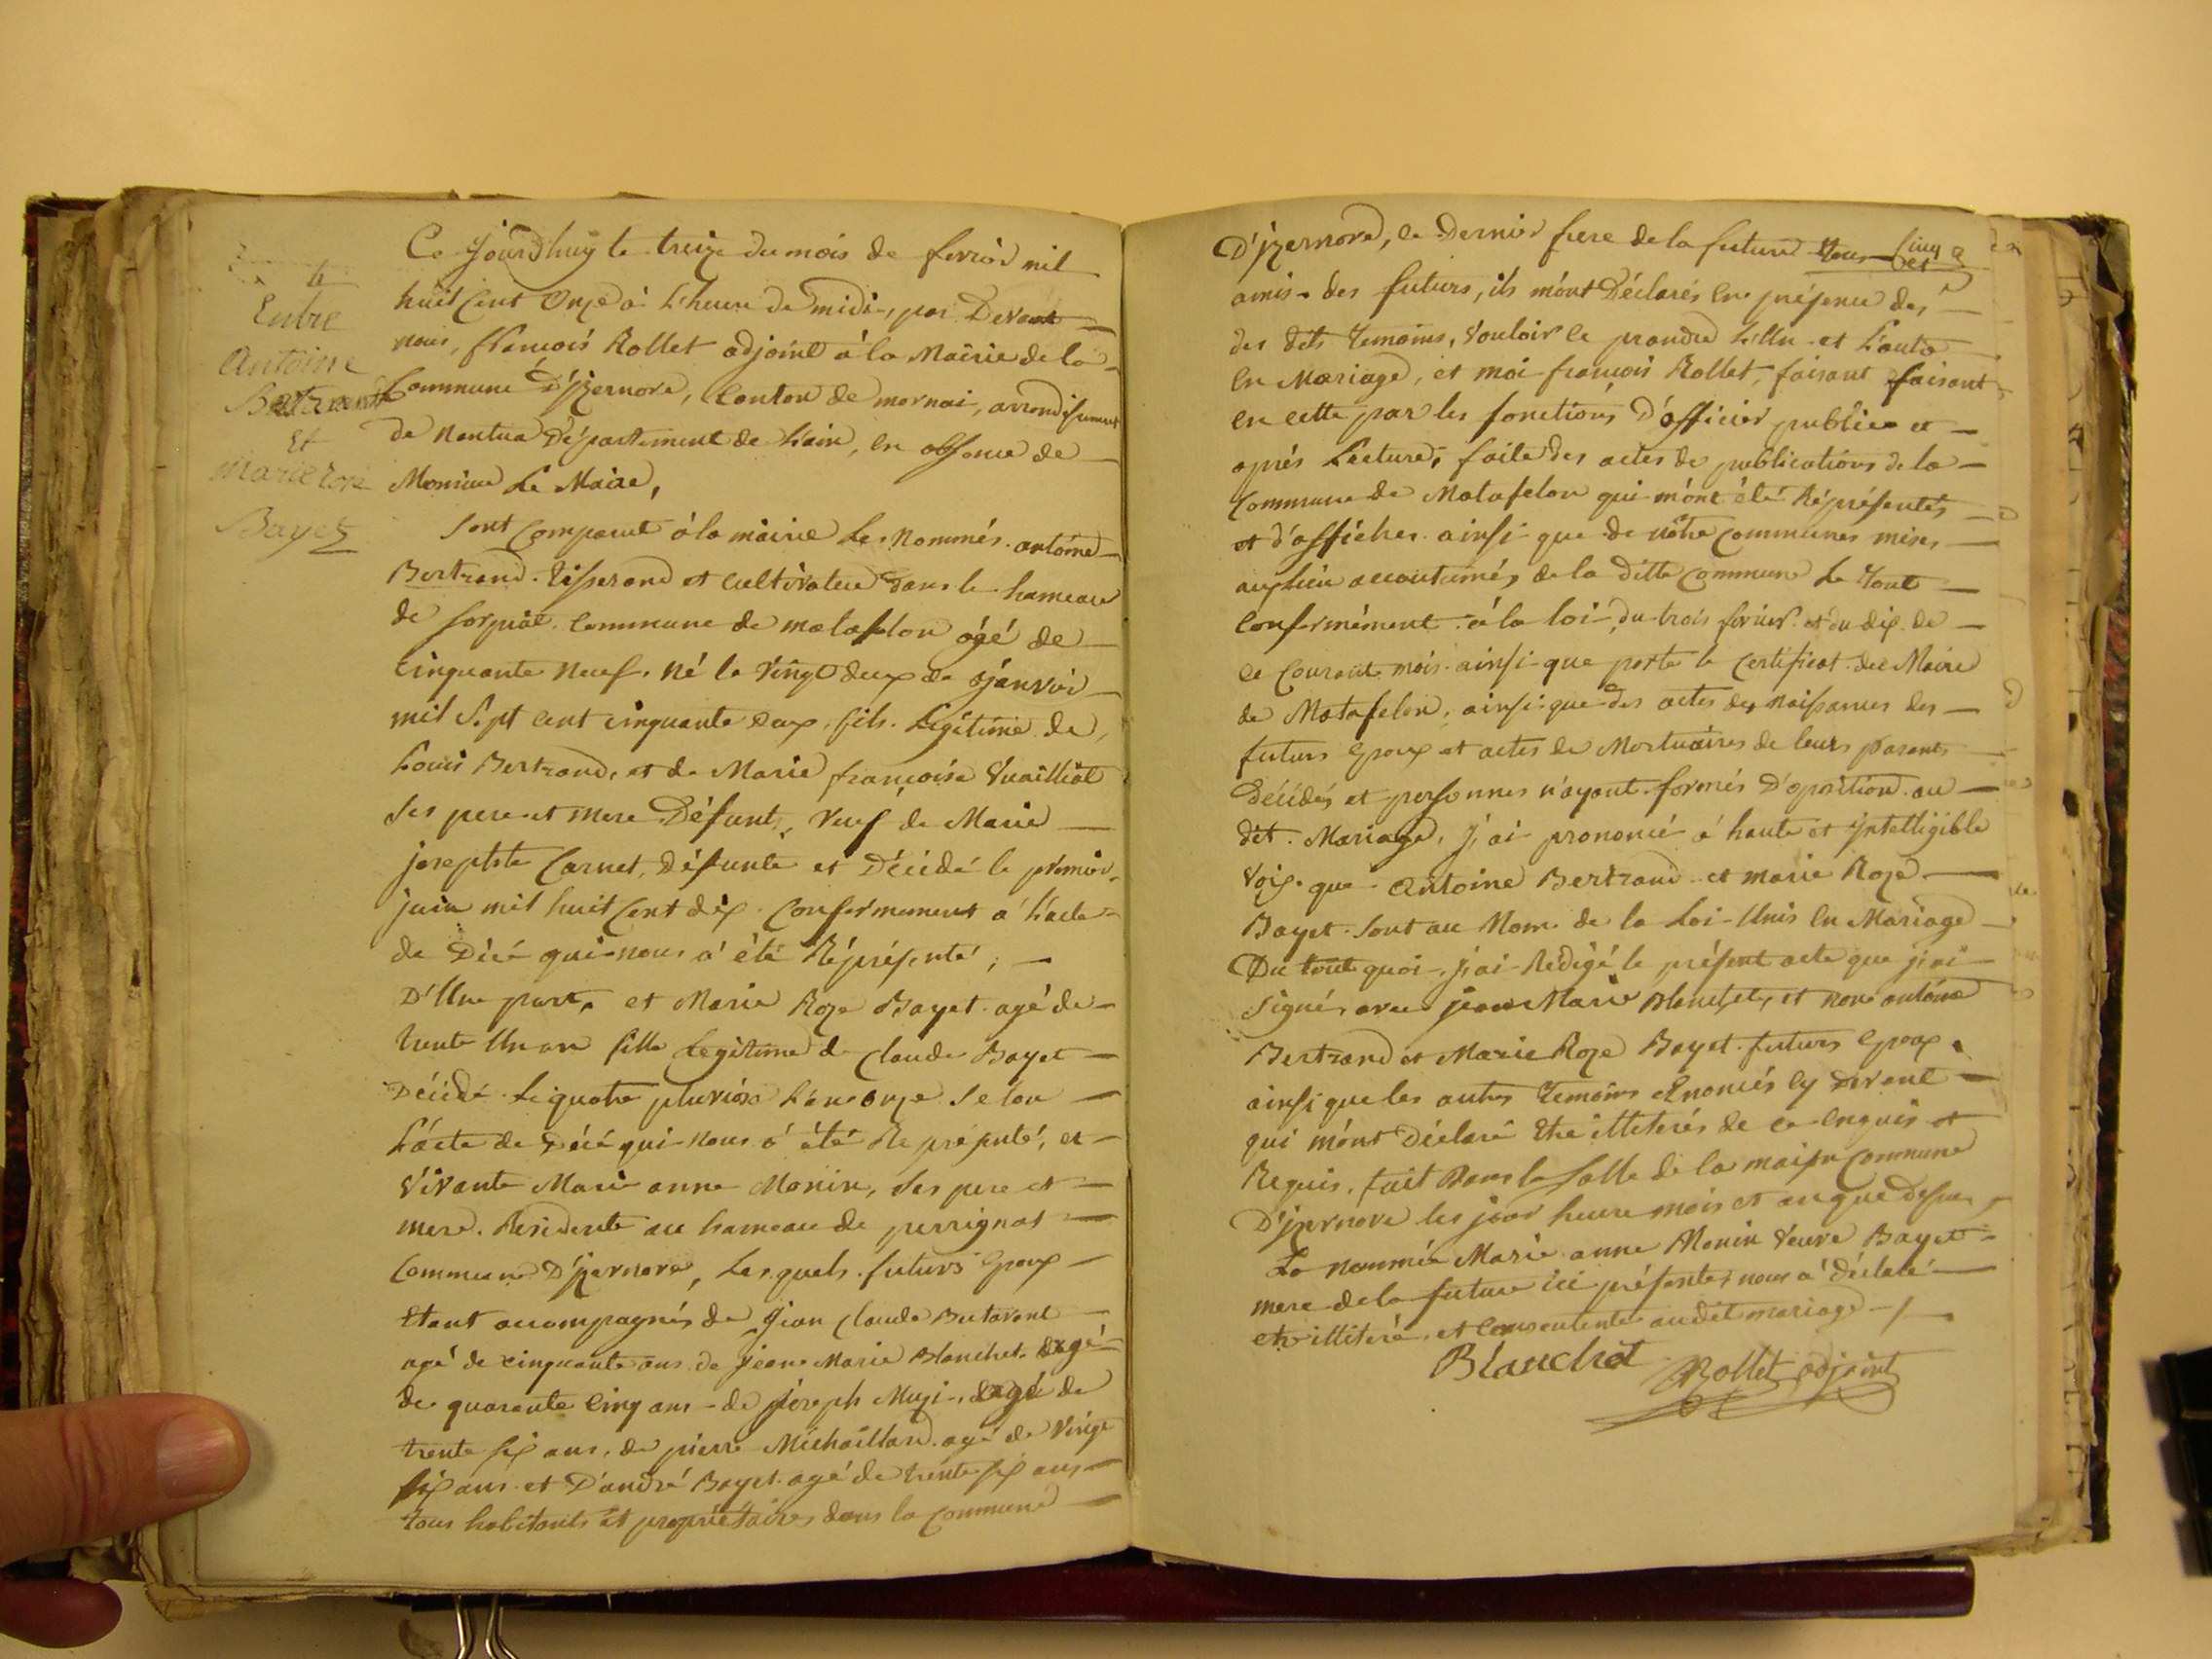 4
Entre
Antoine
Bertrand
Et
Marie Roze
Bayet
Ce Jourdhuy le treize du mois de fevrier mil
huit Cent Onze à L'heure de midi, par Devant
nous, francois Rollet adjoint à la Mairie de la
Commune D'jzernore, Canton de mornai, arrondissement
de Nantua Département de L'ain, en absence de
Monsieur Le Maire,
Sont Comparut à la mairie Les Nommés antoine
Bertrand tisserand et cultivateur dans le hameau
de commune de matafelon agé de
Cinquante Neuf, Né le Vingt deux de janvier
mil Sept cent cinquante deux, fils Legitime de
Louis Bertrand, et de Marie françoise Vuaillat
Ses pere et Mere Défunt, Veuf de Marie
josephte Carnet, défunte et Décédé le prémier
juin mil huit Cent dix Confermement à L'acte
de Décé qui nous à été Réprésenté,
D'Une part, et Marie Roze Bayet agé de
trente Un an fille Legitime de Claude Bayet
Décédé Le quatre pluviôse L'an onze Selon
L'acte de Décé qui nous à été Représenté, et
Vivante Marie anne Monin, Ses pere et
mere. Residente au hameau de perrignat
Commune D'jzernore, Les quels futurs Epoux
Etant accompagnés de Jean Claude
agé de cinquante ans de Jean Marie Blanchet agé
de quarante Cinq ans de joseph agé de
trente six ans, de pierre Michaillard agé de Vingt
six ans et D'andré Bayet agé de trente six ans
tous habitants et propriétaires dans la Commune
D'jzernore, ce Dernier frere de la future Cinq
et
amis des futurs, ils m'ont Déclarés En présence des
des dits temoins, Vouloir ce prandre L'Un et L'autre
En Mariage, et moi francois Rollet, faisant faisant
en cette par les fonctions D'officier public et
aprés Lecture, faite des actes de publications de la
Commune de Matafelon qui m'ont été Réprésentés
et d'affiches ainsi que de nôtre Communes mises
aux lieu accoutumés de la ditte Commune Le Tout
Confermément à la loi, du trois fevrier et du dix de
ce Courant mois ainsi que porte le Certificat du Maire
de Matafelon, ainsi que des actes des Naissances des
futurs Epoux et actes de Mortuaires de leurs parents
Décédés et personnes n'ayant formés D'oposition au
dit Mariage, j'ai prononcé à haute et jntelligible
Voix que Antoine Bertrand et marie Roze
Bayet Sont au Nom de la Loi Unis En Mariage
Du tout quoi j'ai Redigé le présent acte que j'ai
Signé, avec jean Marie Blanchet, et non antoine
Bertrand et Marie Roze Bayet futurs Epoux
ainsi que les autres Temoins Enoncés Cy devant
qui m'ont Déclaré Etre illeterés de ce Enquis et
Requis, fait Dans la Salle de la maison Commune
D'jzernore les jour heure mois et an que dessus,
La nommée Marie anne Monin Veuve Bayet
mere de la future ici présente, nous à déclaré
etre illiteré, et Consentente audit mariage
Blanchet Rollet adjoint